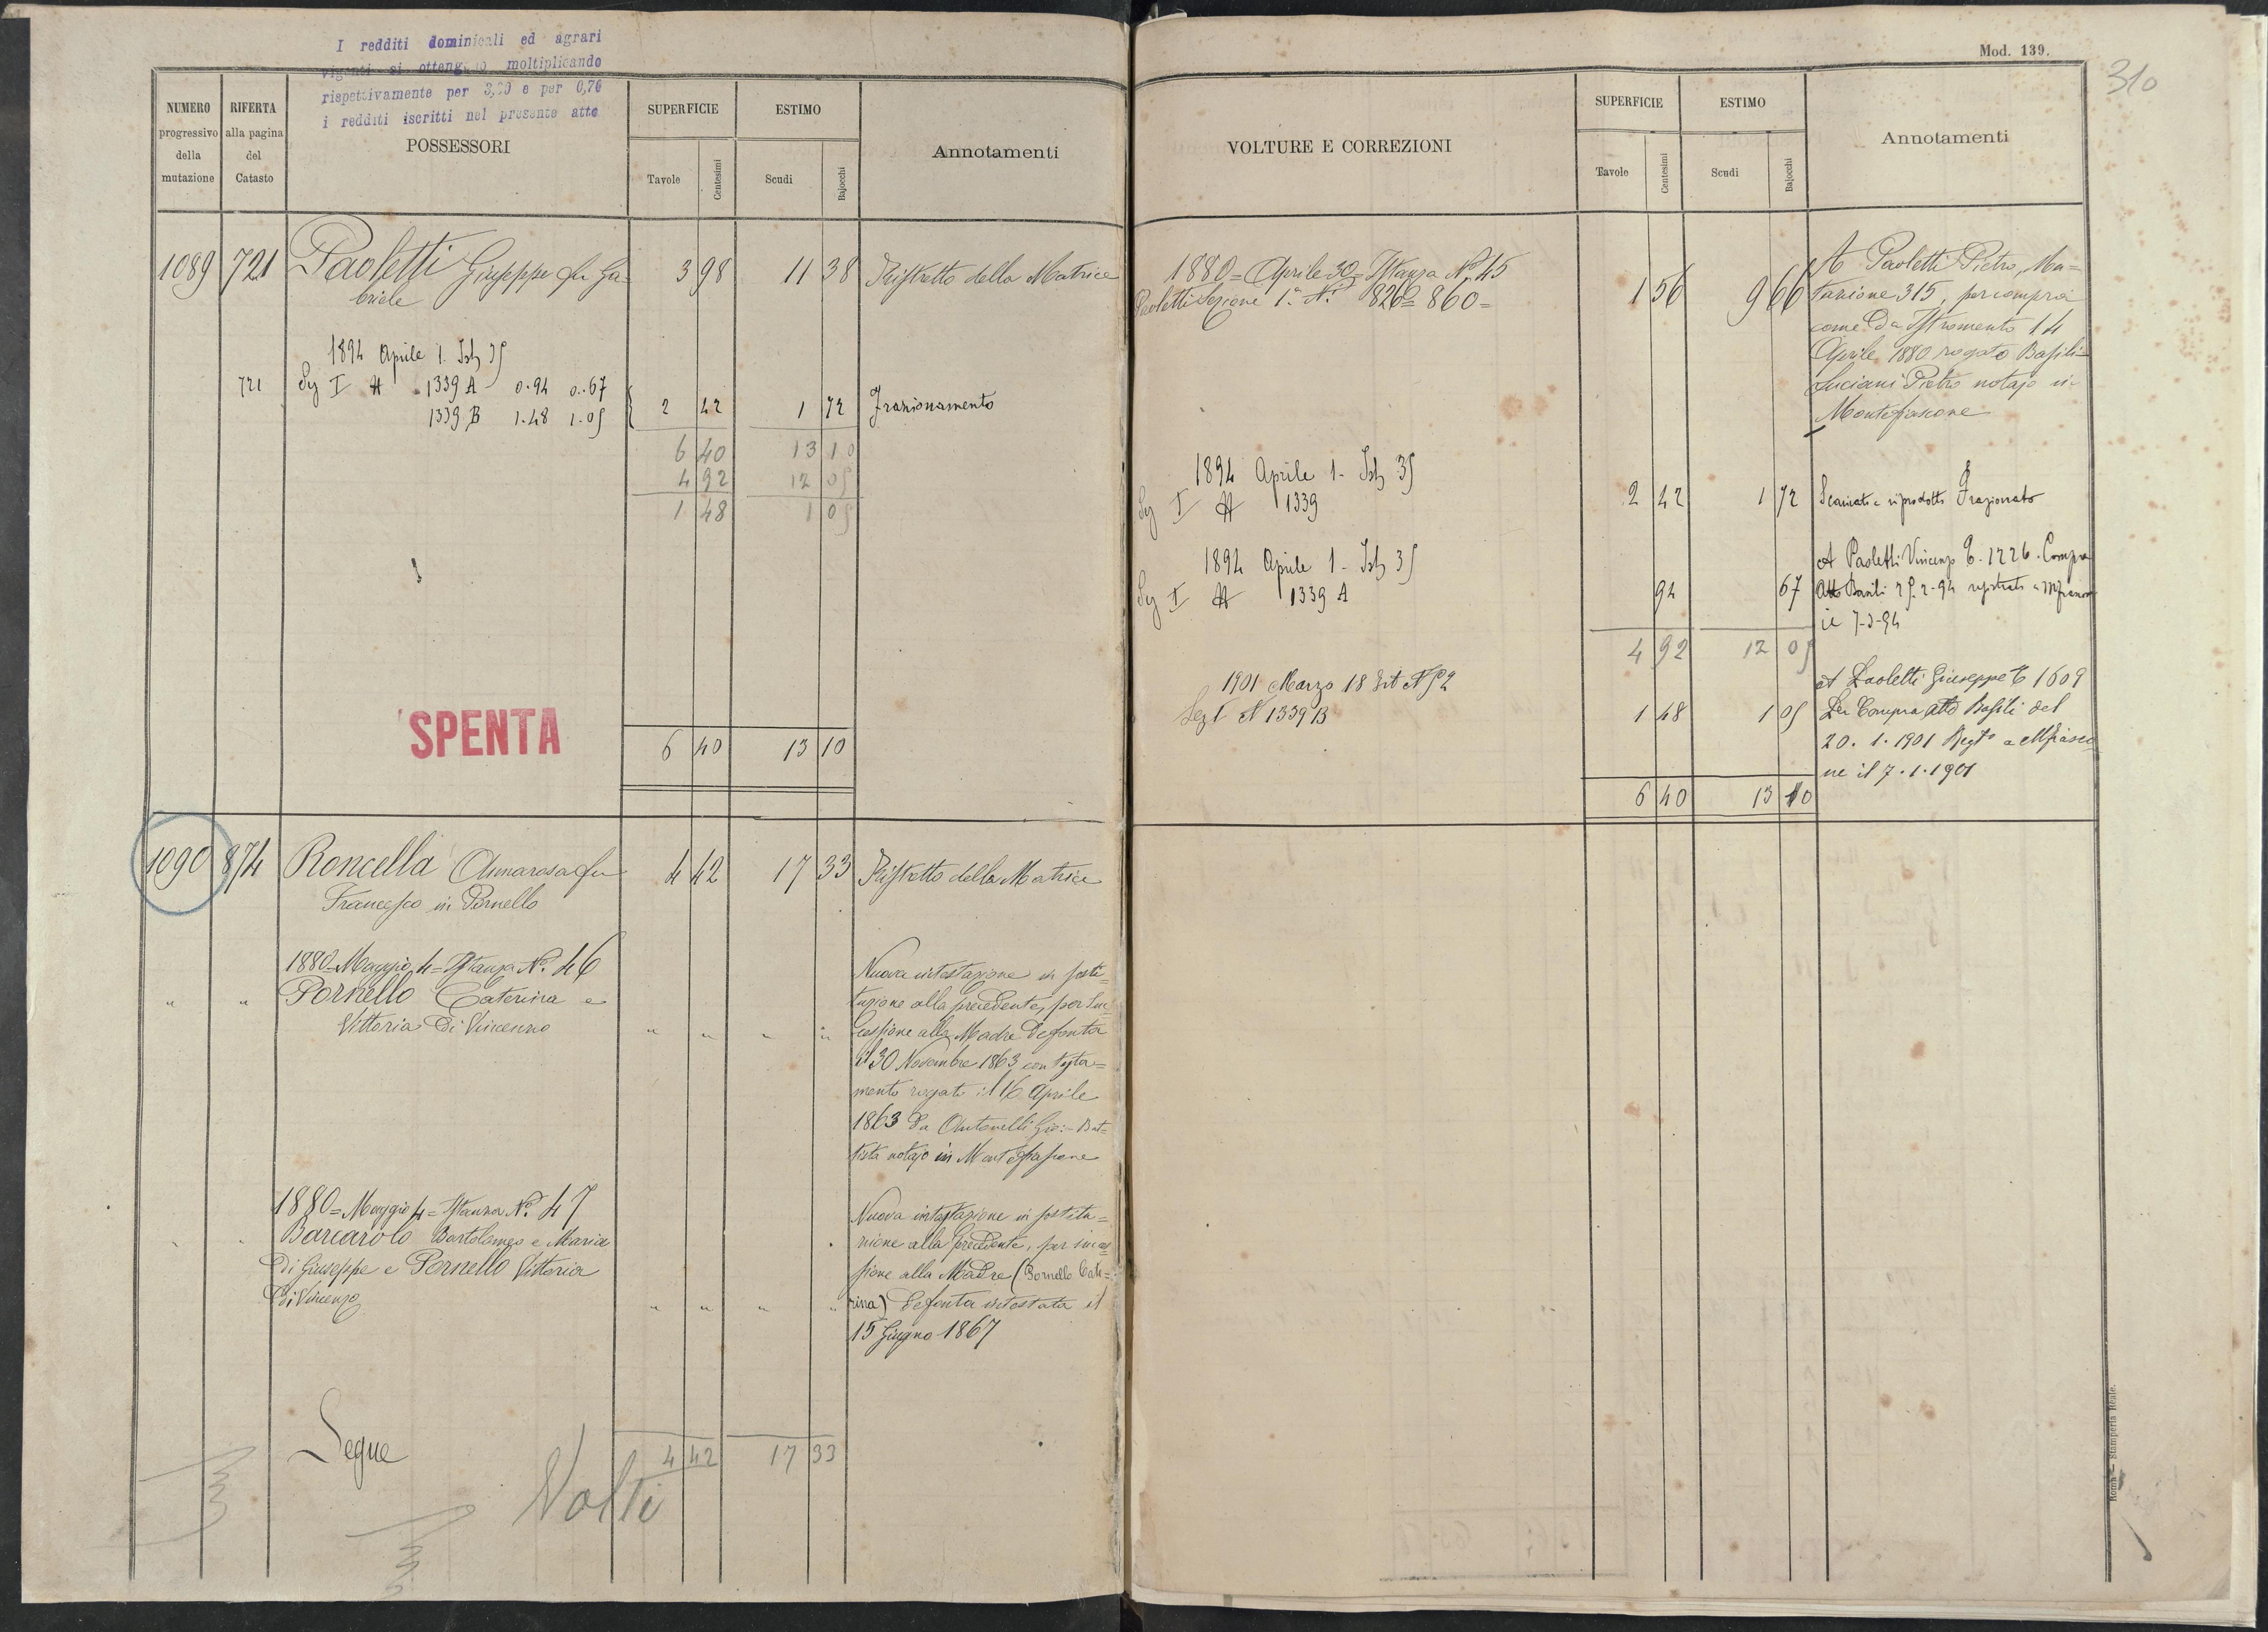 I redditi dominicali ed agrari
vigenti si ottengono moltiplicando
rispettivamente per 3,20 e per 0,70
i redditi iscritti nel presente atto
NUMERO progressivo della mutazione
RIFERTA alla pagina del Catasto
POSSESSORI
SUPERFICIE
Tavole
Centesimi
ESTIMO
Scudi
Bajocchi
Annotamenti
1089 721 Paoletti Giuseppe fu Ga- 3 98 11 38 Ristretto della Matrice
briele
1894 Aprile 1. Ist 35
721 Sez I # 1339 A 0.94 0.67
1339 B 1.48 1.05 2 42 1 72 Frazionamento
6 40 13 10
4 92 12 05
1 48 1 05
SPENTA
6 40 13 10
1090 874 Roncella Annarosa fu 4 42 17 33 Ristretto della Matrice
Francesco in Pornello
1880= Maggio 4= Istanza N.° 46
" " Pornello Caterina e
Vittoria di Vincenzo " " " "
Nuova intestazione in sosti=
tuzione alla precedente, per suc=
cessione alla Madre defonta
il 30 Novembre 1863 con testa=
mento rogato il 16 Aprile
1863 da Antonelli Gio:- Bat=
tista notajo in Montefiascone
1880= Maggio 4= Istanza N.° 47
Barcarolo Bartolomeo e Maria
di Giuseppe e Pornello Vittoria
di Vincenzo " " " "
Nuova intestazione in sostitu=
zione alla precedente, per succes=
sione alla Madre (Pornello Cate=
rina) defonta intestata il
15 Giugno 1867
Segue
4 42 17 33
Volti
Mod. 139.
310
VOLTURE E CORREZIONI
SUPERFICIE
Tavole
Centesimi
ESTIMO
Scudi
Bajocchi
Annotamenti
1880= Aprile 30= Istanza N.° 45
Paoletti Sezione 1.ª N.i 826= 860= 1 56 9 66
A Paoletti Pietro, Mu=
tazione 315, per compra
come da Istromento 14
Aprile 1880 rogato Basili=
Luciani Pietro notajo in
Montefiascone
1894 Aprile 1- Ist 35
Sez I # 1339 2 42 1 72 Scaricato e riprodotto Frazionato
1894 Aprile 1- Ist 35
Sez I # 1339 A 94 67
A Paoletti Vincenzo 1226. Compra
Atto Basili 25-2-94 registrato a
il 7-3-94
4 92 12 05
1901 Marzo 18 Ist N 52
Sez I N 1339 B 1 48 1 05
A Paoletti Giuseppe 1609
Per Compra atto Basili del
20. 1. 1901 Regto a Mfiasco
ne il 7. 1. 1901
6 40 13 10
Roma — Stamperia Reale.